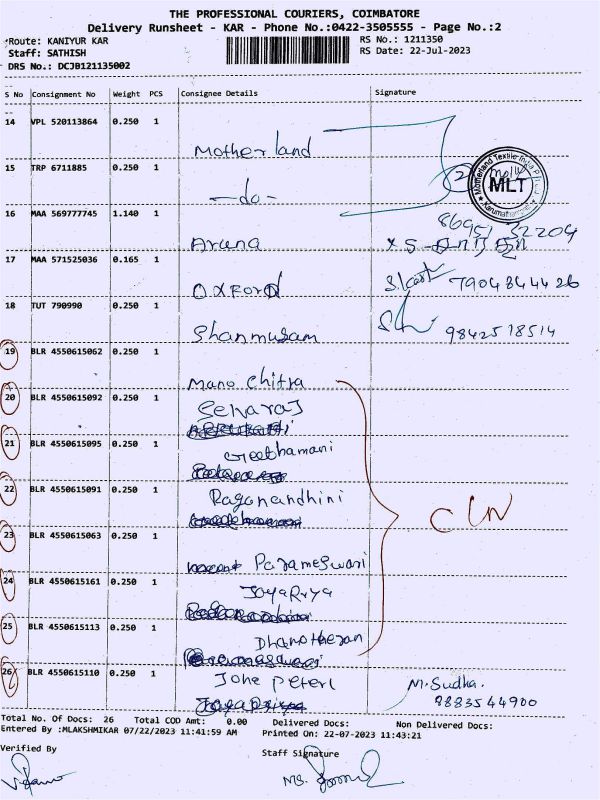 THE PROFESSIONAL COURIERS, COIMBATORE
Delivery Runsheet - KAR - Phone No.:0422-3505555 - Page No.:2
Route: KANIYUR KAR
RS No.: 1211350
Staff: SATHISH
RS Date: 22-Jul-2023
DRS No.: DCJB121135002
S No Consignment No Weight PCS Consignee Details Signature
14 VPL 520113864 0.250 1
Motherland
15 TRP 6711885 0.250 1
-do-
2
Motherland Textile India P
MLT
16 MAA 569777745 1.140 1
Aruna
86951 32204
17 MAA 571525036 0.165 1
OXFORD
7904844426
18 TUT 790990 0.250 1
Shanmugam
9842518514
19 BLR 4550615062 0.250 1
Mano Chitra
20 BLR 4550615092 0.250 1
Selvaraj
21 BLR 4550615095 0.250 1
Geethamani
22 BLR 4550615091 0.250 1
Ragunandhini
23 BLR 4550615063 0.250 1
Parameswari
24 BLR 4550615161 0.250 1
25 BLR 4550615113 0.250 1
26 BLR 4550615110 0.250 1
M. Sudha.
9883544900
Total No. Of Docs: 26 Total COD Amt: 0.00 Delivered Docs: Non Delivered Docs:
Entered By :MLAKSHMIKAR 07/22/2023 11:41:59 AM Printed On: 22-07-2023 11:43:21
Verified By
Staff Signature